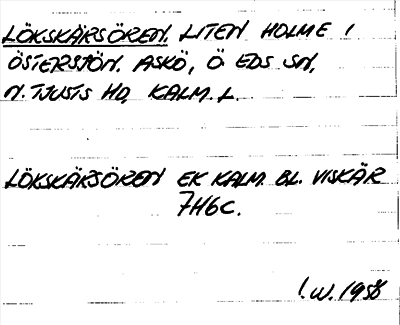 LÖKSKÄRSÖREN. LITEN HOLME I
ÖSTERSJÖN. ASKÖ, Ö EDS SN,
N. TJUSTS HD, KALM. L.
LÖKSKÄRSÖREN EK KALM. BL. VISKÄR
7H6C.
I.W. 1958